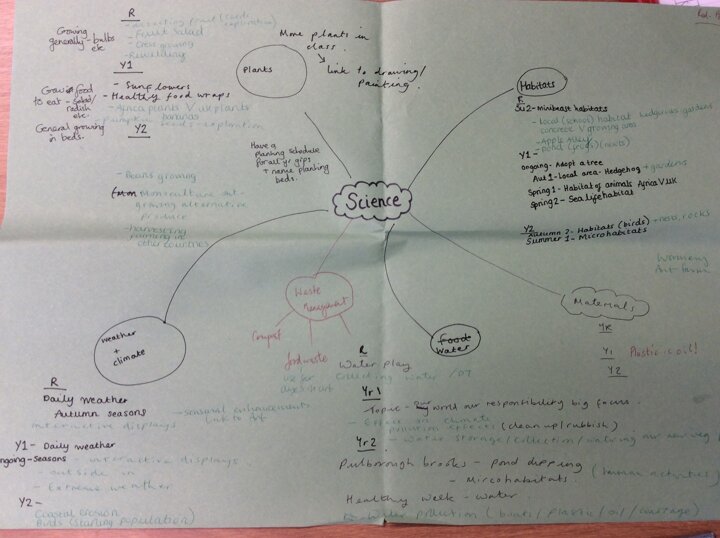 R
Growing generally - bulbs etc
- Fruit Salad
- Cress growing
Y1
Grow food to eat - salad/radish etc.
- Sunflowers
- Healthy food wraps
- Africa plants V UK plants
bananas
General growing in beds.
Y2
- Beans growing
- growing alternative produce
- harvesting
farming in other countries
Plants
More plants in class.
link to drawing/
painting.
Have a
planting schedule
for all yr grps
+ name planting
beds.
Science
Habitats
Su2 - minibeast habitats
- local (school) habitat hedgerows gardens
concrete V growing area
Y1 -
ongoing - Adopt a tree
Aut 1 - local area - Hedgehog + gardens
Spring 1 - Habitat of animals Africa V UK
Spring 2 - Sea life habitat
Y2
Autumn 2 - Habitats (birds) - nests, rocks
Summer 1 - Microhabitats
Materials
YR
Y1 Plastic is oil!
Y2
Waste Management
Compost
food waste
weather
+
climate
R
Daily weather
Autumn seasons
interactive displays
link to Art
Y1 - Daily weather
ongoing - Seasons - interactive displays.
- outside in
- Extreme weather
Y2 -
Coastal erosion
Birds (starling population)
food
Water
R
Water play
Collecting water / DT
Yr 1
Topic - our world our responsibility big focus.
- Effect on climate
pollution effects (clean up/rubbish)
Yr 2
- Water storage/collection/watering our new veg
Pulborough brooks - pond dipping
- Mircohabitats.
(human activities
Healthy week - water
Water pollution (boats/plastic/oil/